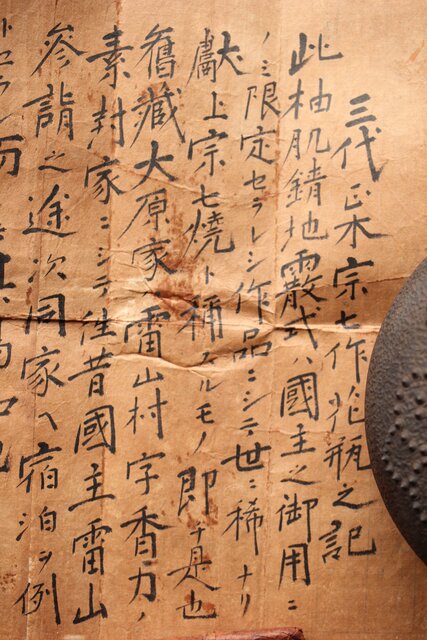 三代正木宗七作花瓶之記
此柚肌錆地霰式ハ國主之御用ニ
ノミ限定セラレシ作品ニシテ世ニ稀ナリ
献上宗七燒ト稱スルモノ即チ是也
舊藏大原家ハ雷山村字香力ノ
素封家ニシテ往昔國主雷山
參詣之途次同家ヘ宿泊ヲ例